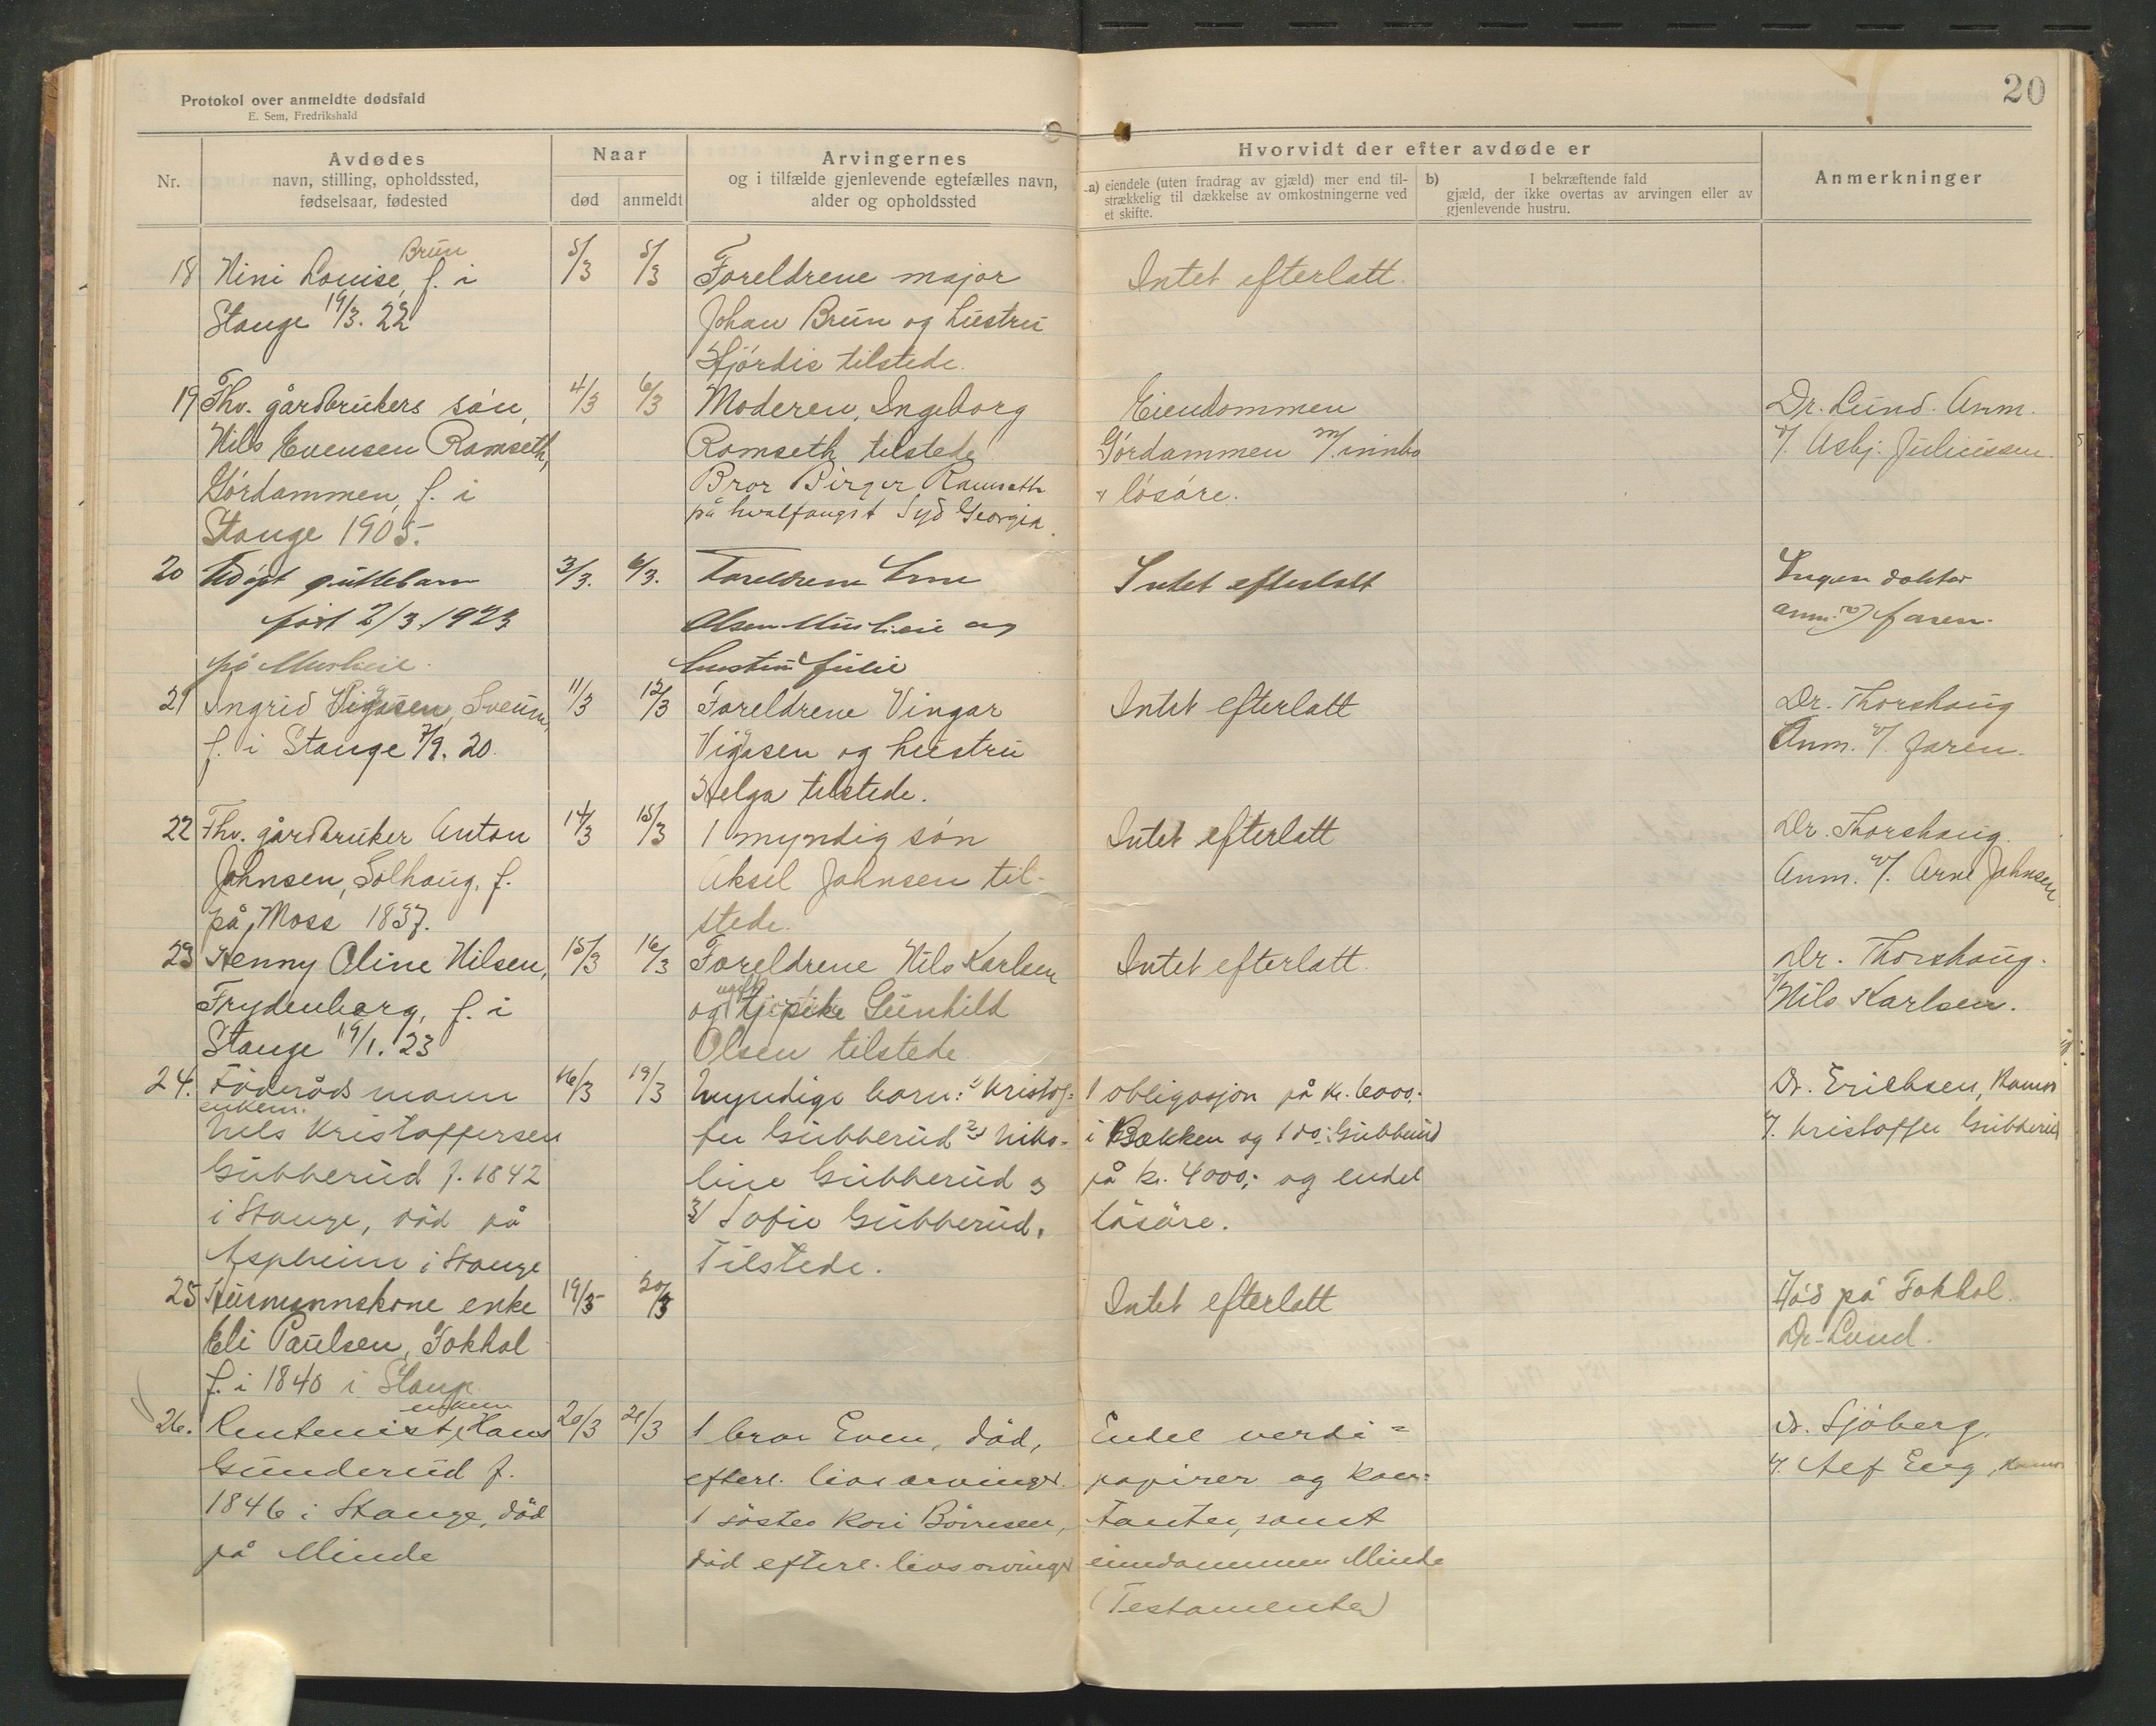 Protokol over anmeldte dødsfald
E. Sem, Fredrikshald
20
Nr.
Avdødes
navn, stilling, opholdssted,
fødselsaar, fødested
Naar
død
anmeldt
Arvingernes
og i tilfælde gjenlevende egtefælles navn,
alder og opholdssted
Hvorvidt der efter avdøde er
a) eiendele (uten fradrag av gjæld) mer end til-
strækkelig til dækkelse av omkostningerne ved
et skifte.
b) I bekræftende fald
gjæld, der ikke overtas av arvingen eller av
gjenlevende hustru.
Anmerkninger
18
Brun
Nini Louise, f. i
Stange 19/3. 22
5/3
5/3
Foreldrene major
Johan Brun og hustru
Hjördis tilstede.
Intet efterlatt.
19
Fhv. gårdbrukers sön,
Nils Evensen Ramseth,
Gördammen, f. i
Stange 1905.
4/3
6/3
Moderen, Ingeborg
Ramseth tilstede
Bror Birger Ramseth
på hvalfangst Syd Georgia.
Eiendommen
Gördammen m/. innbo
& lösöre.
Dr. Lund. Anm.
v/. Asbj. Juliussen.
20
Udöpt guttebarn
födt 2/3. 1923
på
3/3.
6/3.
Foreldrene
Olsen og
hustru Julie
Intet efterlatt
Ingen doktor
anm. v/ faren.
21
Ingrid Vigasen, Sveum,
f. i Stange 7/9. 20.
11/3
12/3
Foreldrene Vingar
Vigasen og hustru
Helga tilstede.
Intet efterlatt
Dr. Thorshaug
Anm. v/. faren.
22
Fhv. gårdbruker Anton
Johnsen, Solhaug, f.
på Moss 1837.
14/3
15/3
1 myndig sön
Aksel Johnsen til-
stede.
Intet efterlatt
Dr. Thorshaug.
Anm. v/. Arne Johnsen
23
Henny Oline Nilsen,
Frydenberg, f. i
Stange 19/1. 23
15/3
16/3
Foreldrene Nils Karlsen
ugift
og tj. pike Gunhild
Olsen tilstede.
Intet efterlatt.
Dr. Thorshaug.
v/ Nils Karlsen.
24.
Föderådsmann
enkem.
Nils Kristoffersen
Gubberud f. 1842
i Stange, död på
Aspheim i Stange
16/3
19/3
Myndige barn: 1) Kristof-
fer Gubberud 2) Niko-
line Gubberud og
3) Sofie Gubberud.
Tilstede.
1 obligasjon på kr. 6000.-
i Bækken og 1 do: Gubberud
på kr. 4000,- og endel
lösöre.
Dr. Erichsen, Hamar
v. Kristoffer Gubberud
25
Husmannskone enke
Eli Paulsen, Fokhol
f. i 1840 i Stange
19/3
20/3
Intet efterlatt
Död på Fokhol.
Dr. Lund.
26.
enkem
Rentenist, Hans
Gunderud f.
1846 i Stange, död
på Minde
20/3
21/3
1 bror Even, död,
efterl. livsarvinger.
1 söster Kari Börresen,
död efterl. livsarvinger
Endel verdi-
papirer og kon-
tanter, samt
eiendommen Minde
(Testamenter)
Dr. Sjöberg,
v. Alf Eeg, Hamar